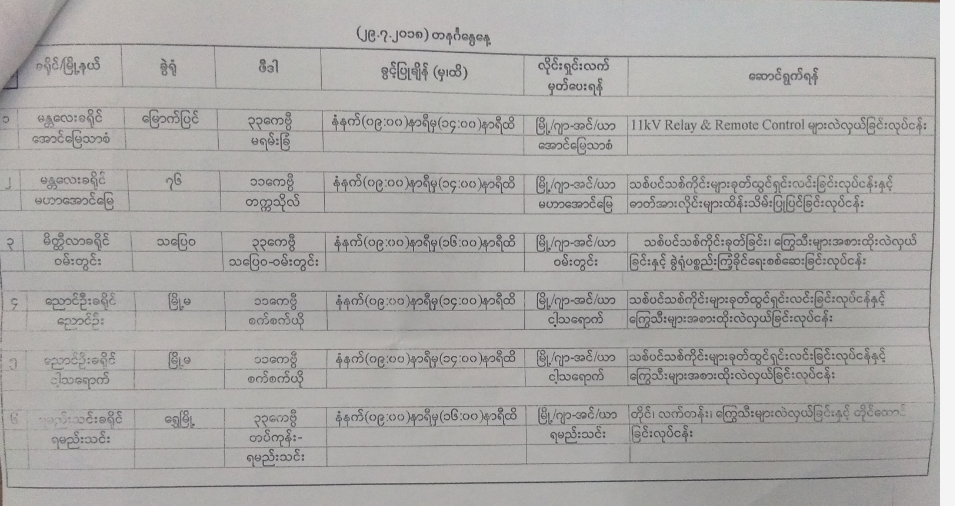 (၂၉.၇.၂၀၁၈) တနင်္ဂနွေနေ့
ခရိုင်/မြို့နယ် ခွဲရုံ ဖီဒါ ခွင့်ပြုချိန် (မှ/ထိ) လိုင်းရှင်းလက် ဆောင်ရွက်ရန်
မှတ်ပေးရန်
၁ မန္တလေးခရိုင် မြောက်ပြင် ၃၃ကေဗွီ နံနက်(၀၉:၀၀)နာရီမှ(၁၄:၀၀)နာရီထိ မြို့/ဂျာ-အင်/ယာ 11kV Relay & Remote Control များလဲလှယ်ခြင်းလုပ်ငန်း
အောင်မြေသာစံ မရမ်းခြံ အောင်မြေသာစံ
၂ မန္တလေးခရိုင် ၇၆ ၁၁ကေဗွီ နံနက်(၀၉:၀၀)နာရီမှ(၁၄:၀၀)နာရီထိ မြို့/ဂျာ-အင်/ယာ သစ်ပင်သစ်ကိုင်းများခုတ်ထွင်ရှင်းလင်းခြင်းလုပ်ငန်းနှင့်
မဟာအောင်မြေ တက္ကသိုလ် မဟာအောင်မြေ ဓာတ်အားလိုင်းများထိန်းသိမ်းပြုပြင်ခြင်းလုပ်ငန်း
၃ မိတ္ထီလာခရိုင် သပြေဝ ၃၃ကေဗွီ နံနက်(၀၉:၀၀)နာရီမှ(၁၆:၀၀)နာရီထိ မြို့/ဂျာ-အင်/ယာ သစ်ပင်သစ်ကိုင်းခုတ်ခြင်း၊ ကြွေသီးများအစားထိုးလဲလှယ်
ဝမ်းတွင်း သပြေဝ-ဝမ်းတွင်း ဝမ်းတွင်း ခြင်းနှင့် ခွဲရုံပစ္စည်းကြံ့ခိုင်ရေးစစ်ဆေးခြင်းလုပ်ငန်း
၄ ညောင်ဦးခရိုင် မြို့မ ၁၁ကေဗွီ နံနက်(၀၉:၀၀)နာရီမှ(၁၄:၀၀)နာရီထိ မြို့/ဂျာ-အင်/ယာ သစ်ပင်သစ်ကိုင်းများခုတ်ထွင်ရှင်းလင်းခြင်းလုပ်ငန်နှင့်
ညောင်ဦး စက်စက်ယို ငါ့သရောက် ကြွေသီးများအစားထိုးလဲလှယ်ခြင်းလုပ်ငန်း
၅ ညောင်ဦးခရိုင် မြို့မ ၁၁ကေဗွီ နံနက်(၀၉:၀၀)နာရီမှ(၁၄:၀၀)နာရီထိ မြို့/ဂျာ-အင်/ယာ သစ်ပင်သစ်ကိုင်းများခုတ်ထွင်ရှင်းလင်းခြင်းလုပ်ငန်နှင့်
ငါ့သရောက် စက်စက်ယို ငါ့သရောက် ကြွေသီးများအစားထိုးလဲလှယ်ခြင်းလုပ်ငန်း
၆ ရမည်းသင်းခရိုင် ရွှေမြို့ ၃၃ကေဗွီ နံနက်(၀၉:၀၀)နာရီမှ(၁၆:၀၀)နာရီထိ မြို့/ဂျာ-အင်/ယာ တိုင်၊ လက်တန်း၊ ကြွေသီးများလဲလှယ်ခြင်းနှင့် တိုင်ထောင်
ရမည်းသင်း တပ်ကုန်း- ရမည်းသင်း ခြင်းလုပ်ငန်း
ရမည်းသင်း